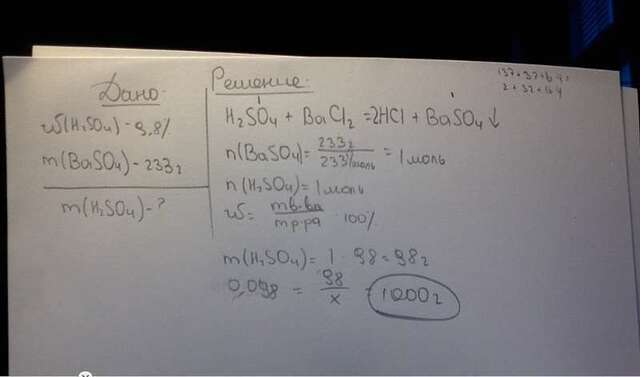 Дано:
ω(H₂SO₄) - 9,8%
m(BaSO₄) - 233г
m(H₂SO₄) - ?
Решение.
137+32+16·4=
2+32+16·4
H₂SO₄ + BaCl₂ = 2HCl + BaSO₄↓
n(BaSO₄) = 233г / 233г/моль = 1 моль
n(H₂SO₄) = 1 моль
ω = mв-ва / mр-ра · 100%
m(H₂SO₄) = 1 · 98 = 98г
0,098 = 98 / x = 1000г